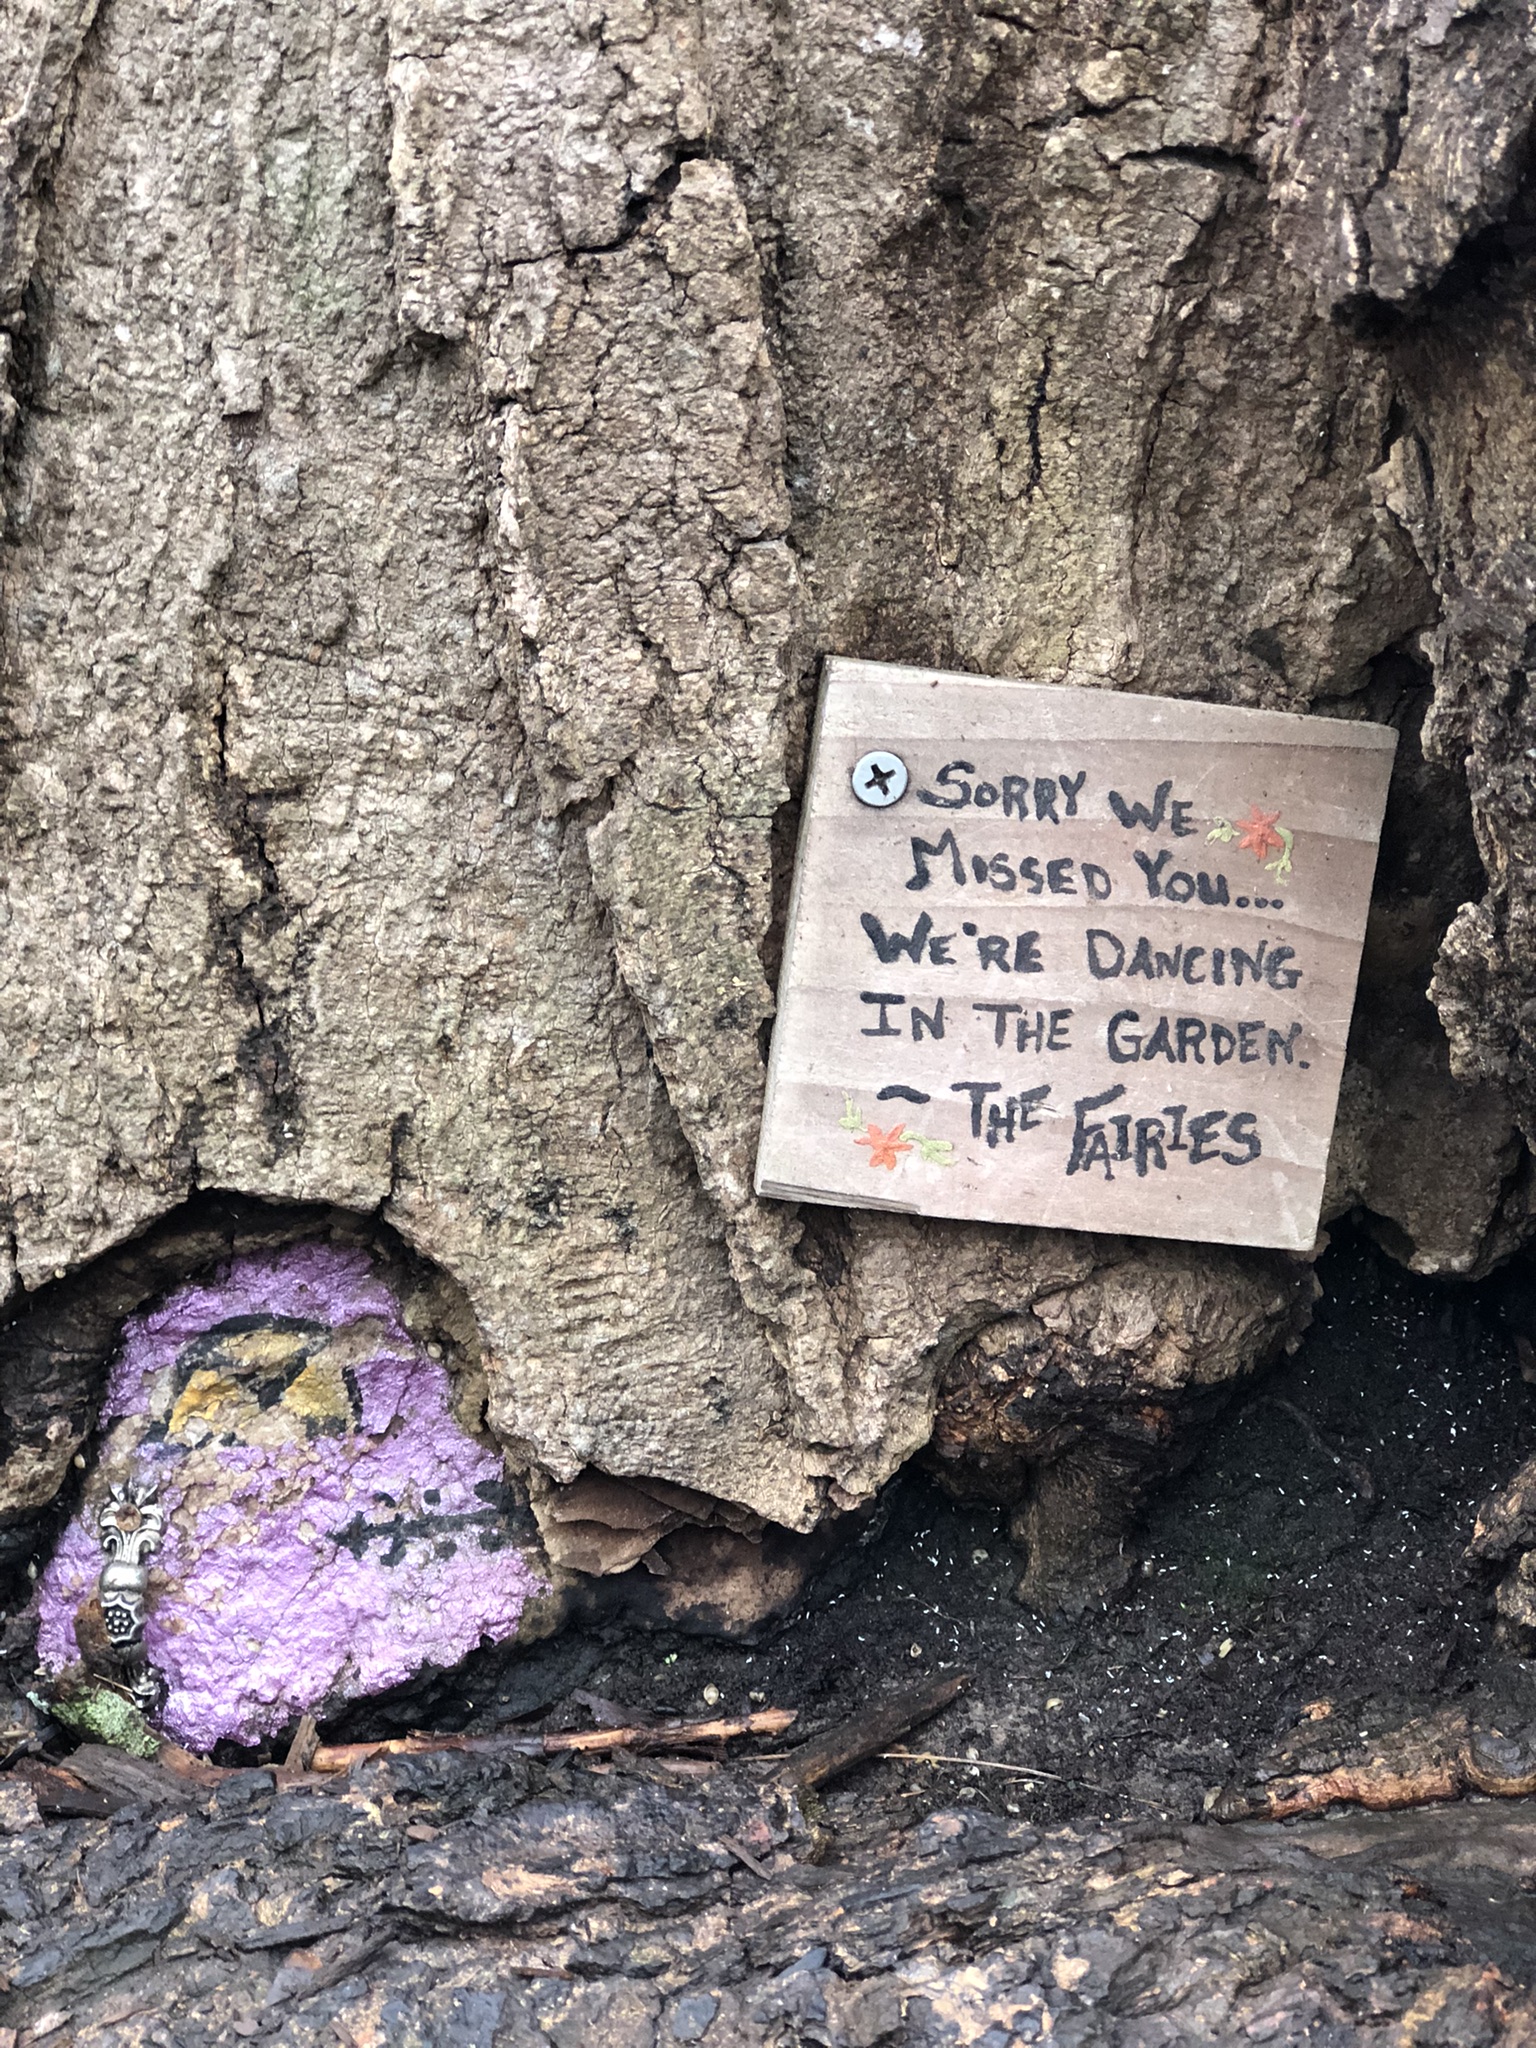 SORRY WE
MISSED YOU...
WE'RE DANCING
IN THE GARDEN.
~ THE FAIRIES